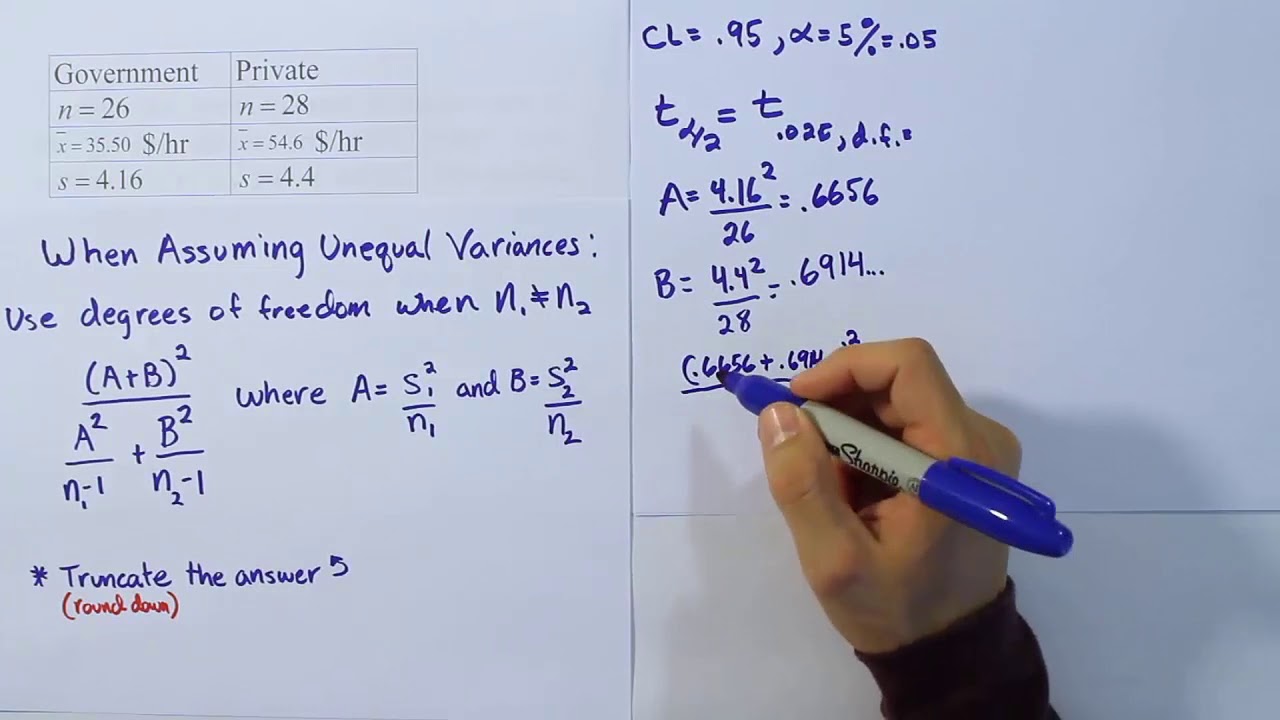 Government Private
n = 26 n = 28
x̄ = 35.50 $/hr x̄ = 54.6 $/hr
s = 4.16 s = 4.4
When Assuming Unequal Variances:
Use degrees of freedom when n₁ ≠ n₂
(A+B)² / (A²/(n₁-1) + B²/(n₂-1)) where A = s₁²/n₁ and B = s₂²/n₂
* Truncate the answer
(round down)
CL = .95, α = 5% = .05
t α/2 = t .025, d.f. =
A = 4.16²/26 = .6656
B = 4.4²/28 = .6914...
(.6656 + .691 ²
Sharpie